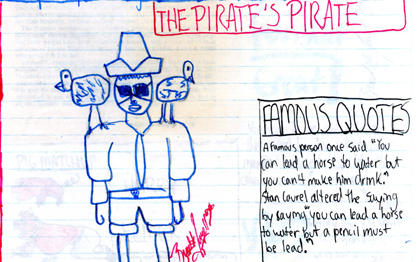 THE PIRATE'S PIRATE
FAMOUS QUOTES
A famous person once said "You
can lead a horse to water but
you can't make him drink."
Stan Laurel altered the saying
by saying "you can lead a horse
to water but a pencil must
be lead."